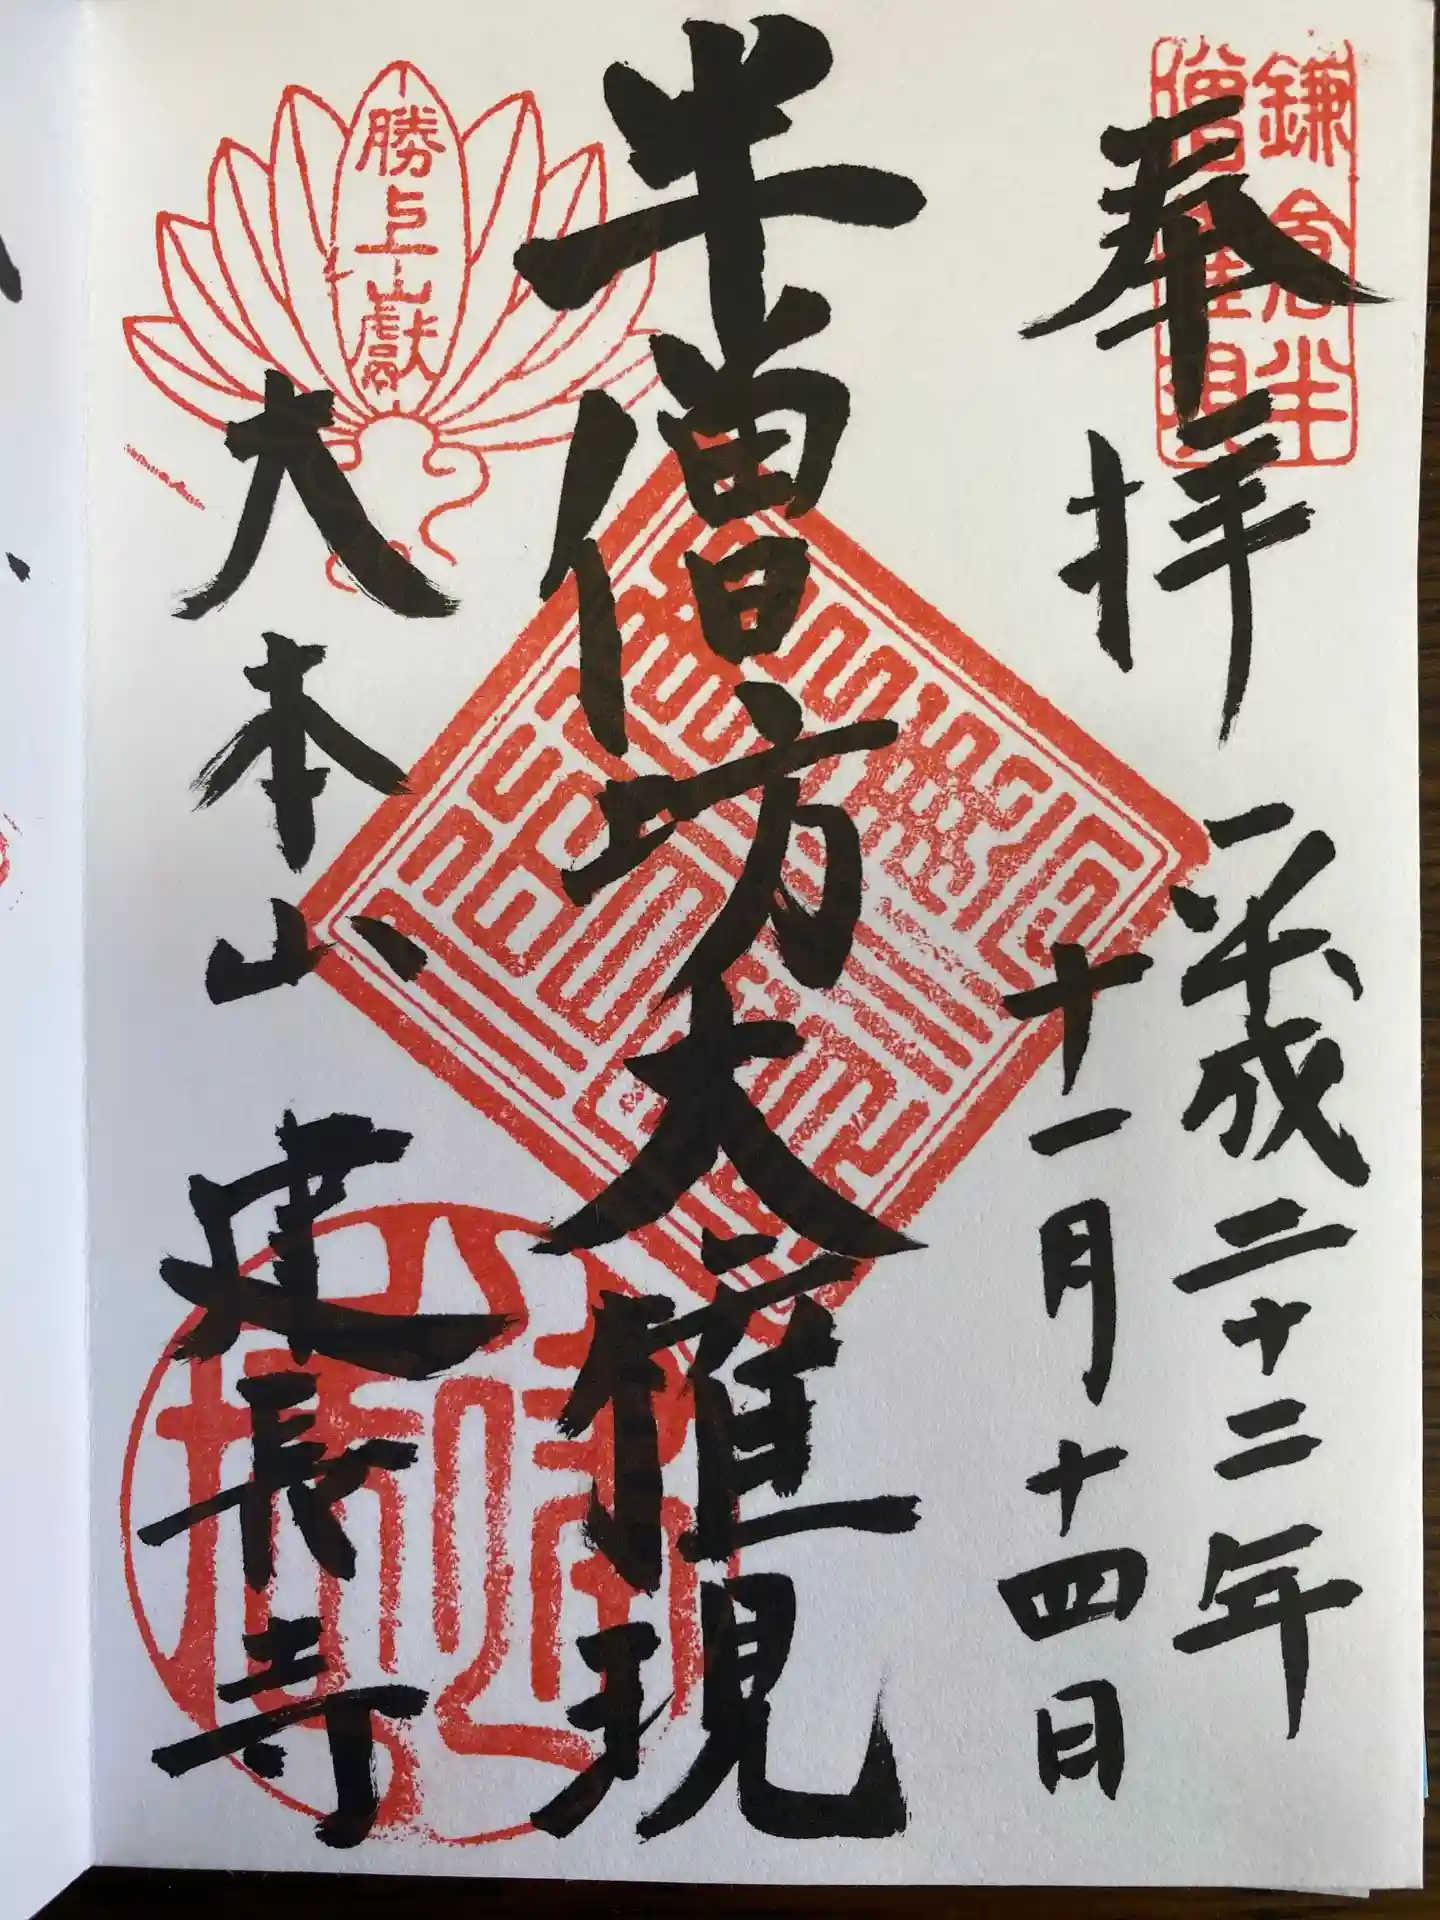 奉拝
平成二十二年
十一月十四日
半僧坊大権現
大本山 建長寺
鎌倉半
僧
勝上山獻